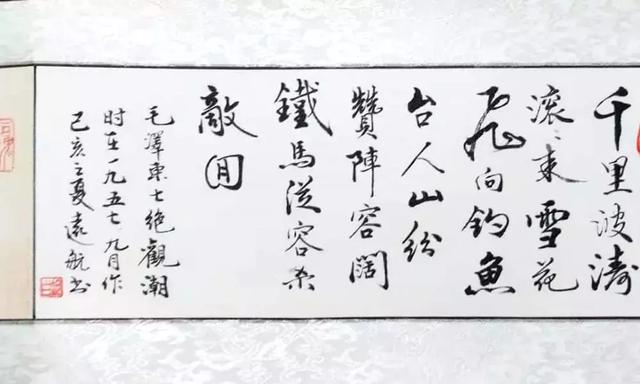 千里波涛
滚〻来雪花
飛向釣魚
台人山纷
贊陣容闊
鐵馬從容杀
敵回
毛澤東七绝觀潮
时在一九五七九月作
己亥之夏遠航书